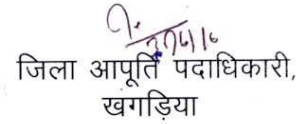 जिला आपूर्ति पदाधिकारी,
खगड़िया